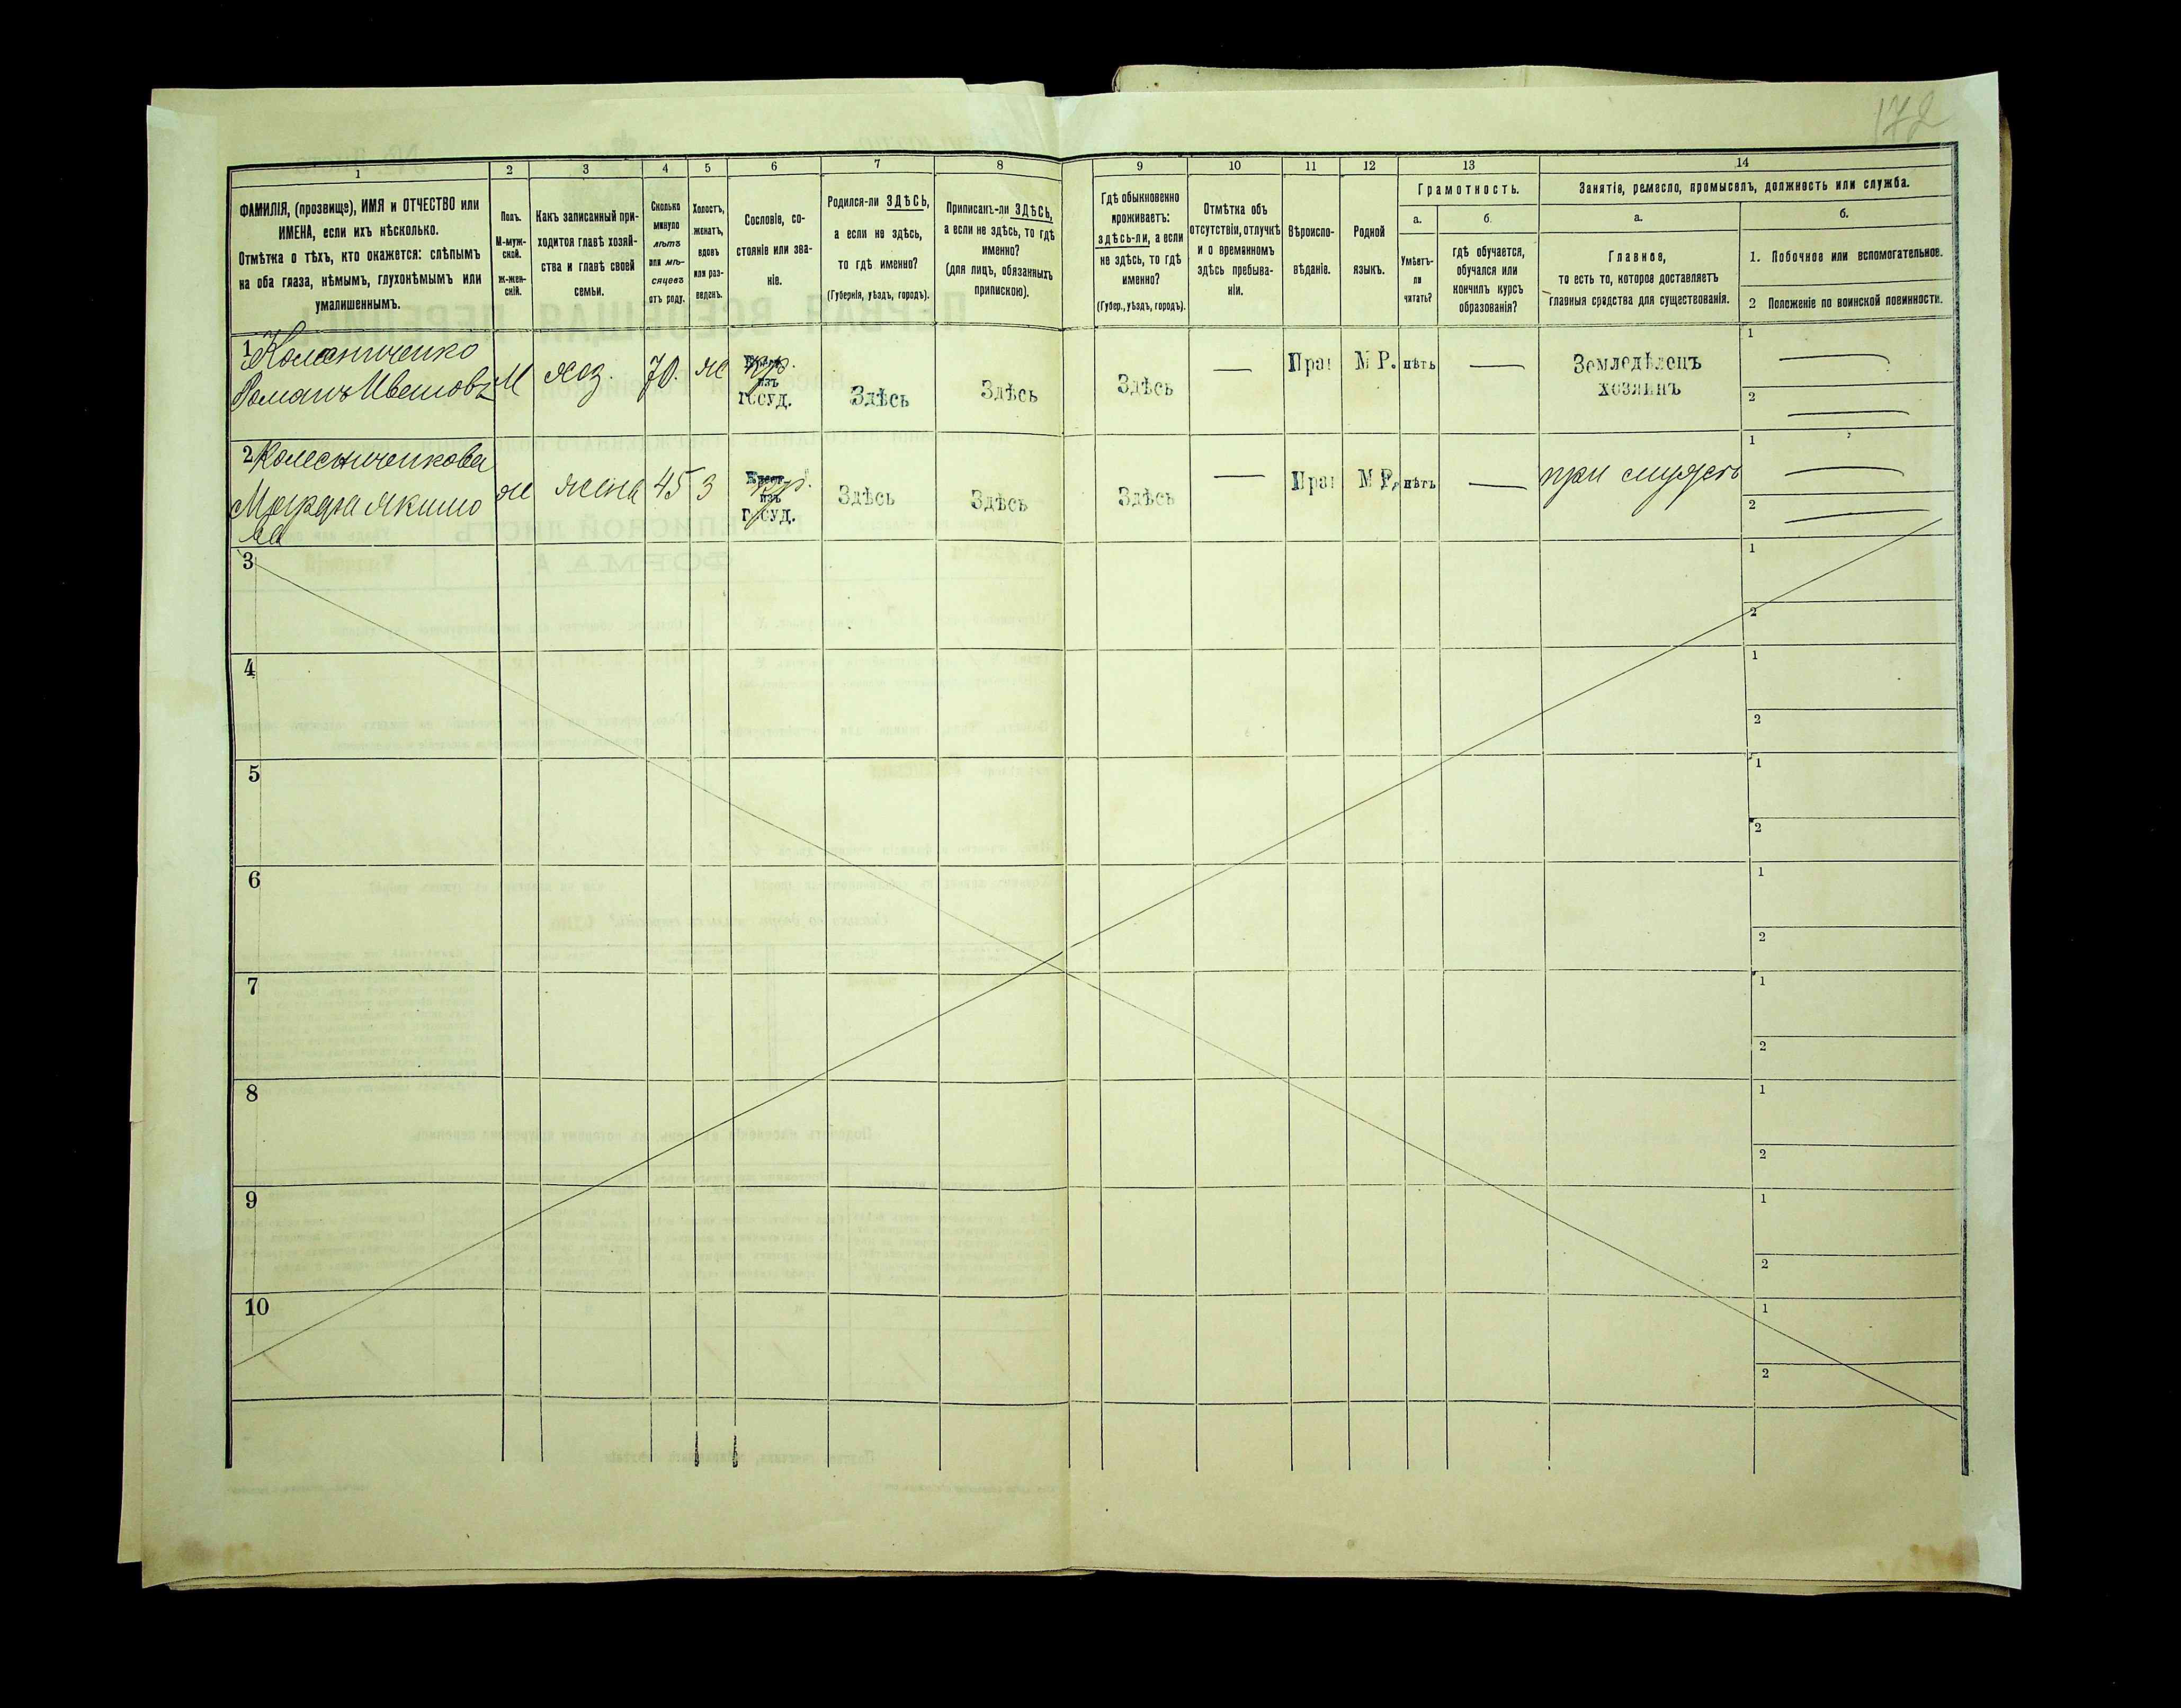 172
1 2 3 4 5 6 7 8 9 10 11 12 13 14
ФАМИЛІЯ, (прозвище), ИМЯ и ОТЧЕСТВО или
ИМЕНА, если ихъ нѣсколько.
Отмѣтка о тѣхъ, кто окажется: слѣпымъ
на оба глаза, нѣмымъ, глухонѣмымъ или
умалишеннымъ.
Полъ.
М-муж-
ской.
Ж-жен-
скій.
Какъ записанный при-
ходится главѣ хозяй-
ства и главѣ своей
семьи.
Сколько
минуло
лѣтъ
или мѣ-
сяцевъ
отъ роду.
Холостъ,
женатъ,
вдовъ
или раз-
веденъ.
Сословіе, со-
стояніе или зва-
ніе.
Родился-ли ЗДѢСЬ,
а если не здѣсь,
то гдѣ именно?
(Губернія, уѣздъ, городъ).
Приписанъ-ли ЗДѢСЬ,
а если не здѣсь, то гдѣ
именно?
(для лицъ, обязанныхъ
припиской).
Гдѣ обыкновенно
проживаетъ:
здѣсь-ли, а если
не здѣсь, то гдѣ
именно?
(Губер., уѣздъ, городъ).
Отмѣтка объ
отсутствіи, отлучкѣ
и о временномъ
здѣсь пребыва-
ніи.
Вѣроиспо-
вѣданіе.
Родной
языкъ.
Грамотность.
а.
Умѣетъ-
ли
читать?
б.
гдѣ обучается,
обучался или
кончилъ курсъ
образованія?
Занятіе, ремесло, промыселъ, должность или служба.
а.
Главное,
то есть то, которое доставляетъ
главныя средства для существованія.
б.
1. Побочное или вспомогательное.
2 Положеніе по воинской повинности.
1 Колесниченко
Романъ Ивановъ
М
хоз.
70.
ж
Крест.
изъ
госуд.
кр.
Здѣсь
Здѣсь
Здѣсь
—
Пра
М Р.
нѣтъ
—
Земледѣлецъ
хозяинъ
1 —
2 —
2 Колесниченкова
Марфа Якимо
ва
ж
жена
45
З
Крест.
изъ
госуд.
кр.
Здѣсь
Здѣсь
Здѣсь
—
Пра
М Р.
нѣтъ
—
при мужѣ
1 —
2 —
3 1
2
4 1
2
5 1
2
6 1
2
7 1
2
8 1
2
9 1
2
10 1
2